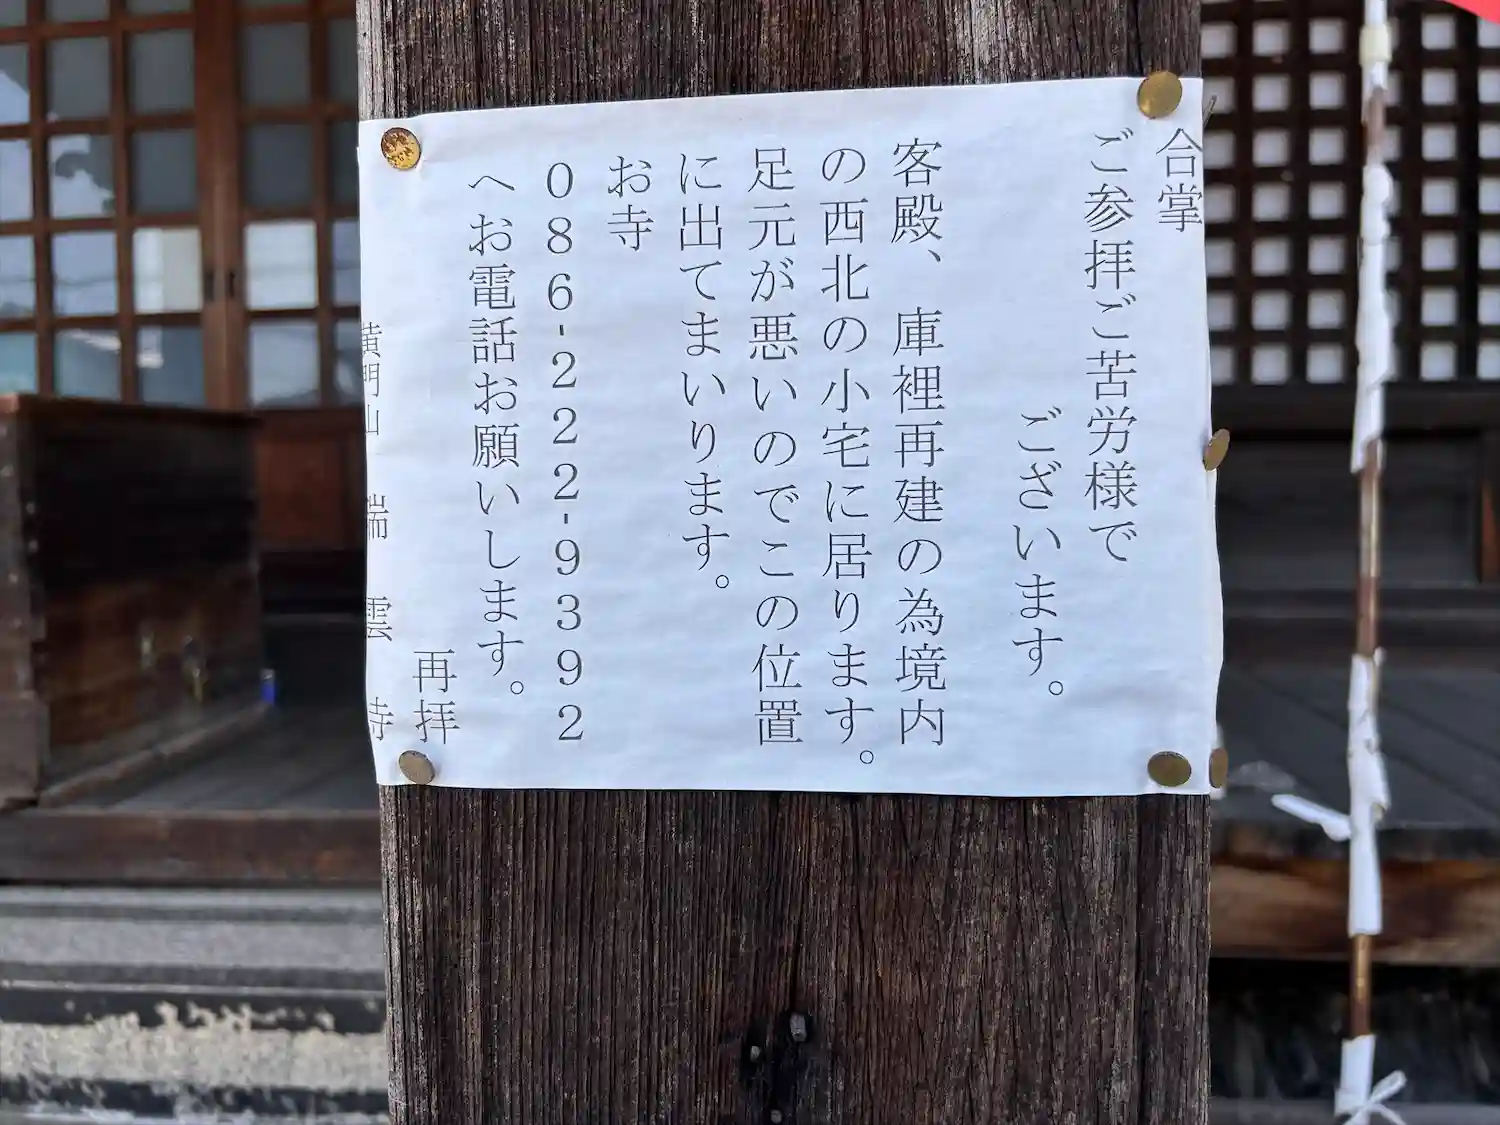 合掌
ご参拝ご苦労様で
ございます。
客殿、庫裡再建の為境内
の西北の小宅に居ります。
足元が悪いのでこの位置
に出てまいります。
お寺
086-222-9392
へお電話お願いします。
再拝
黄門山 瑞雲寺